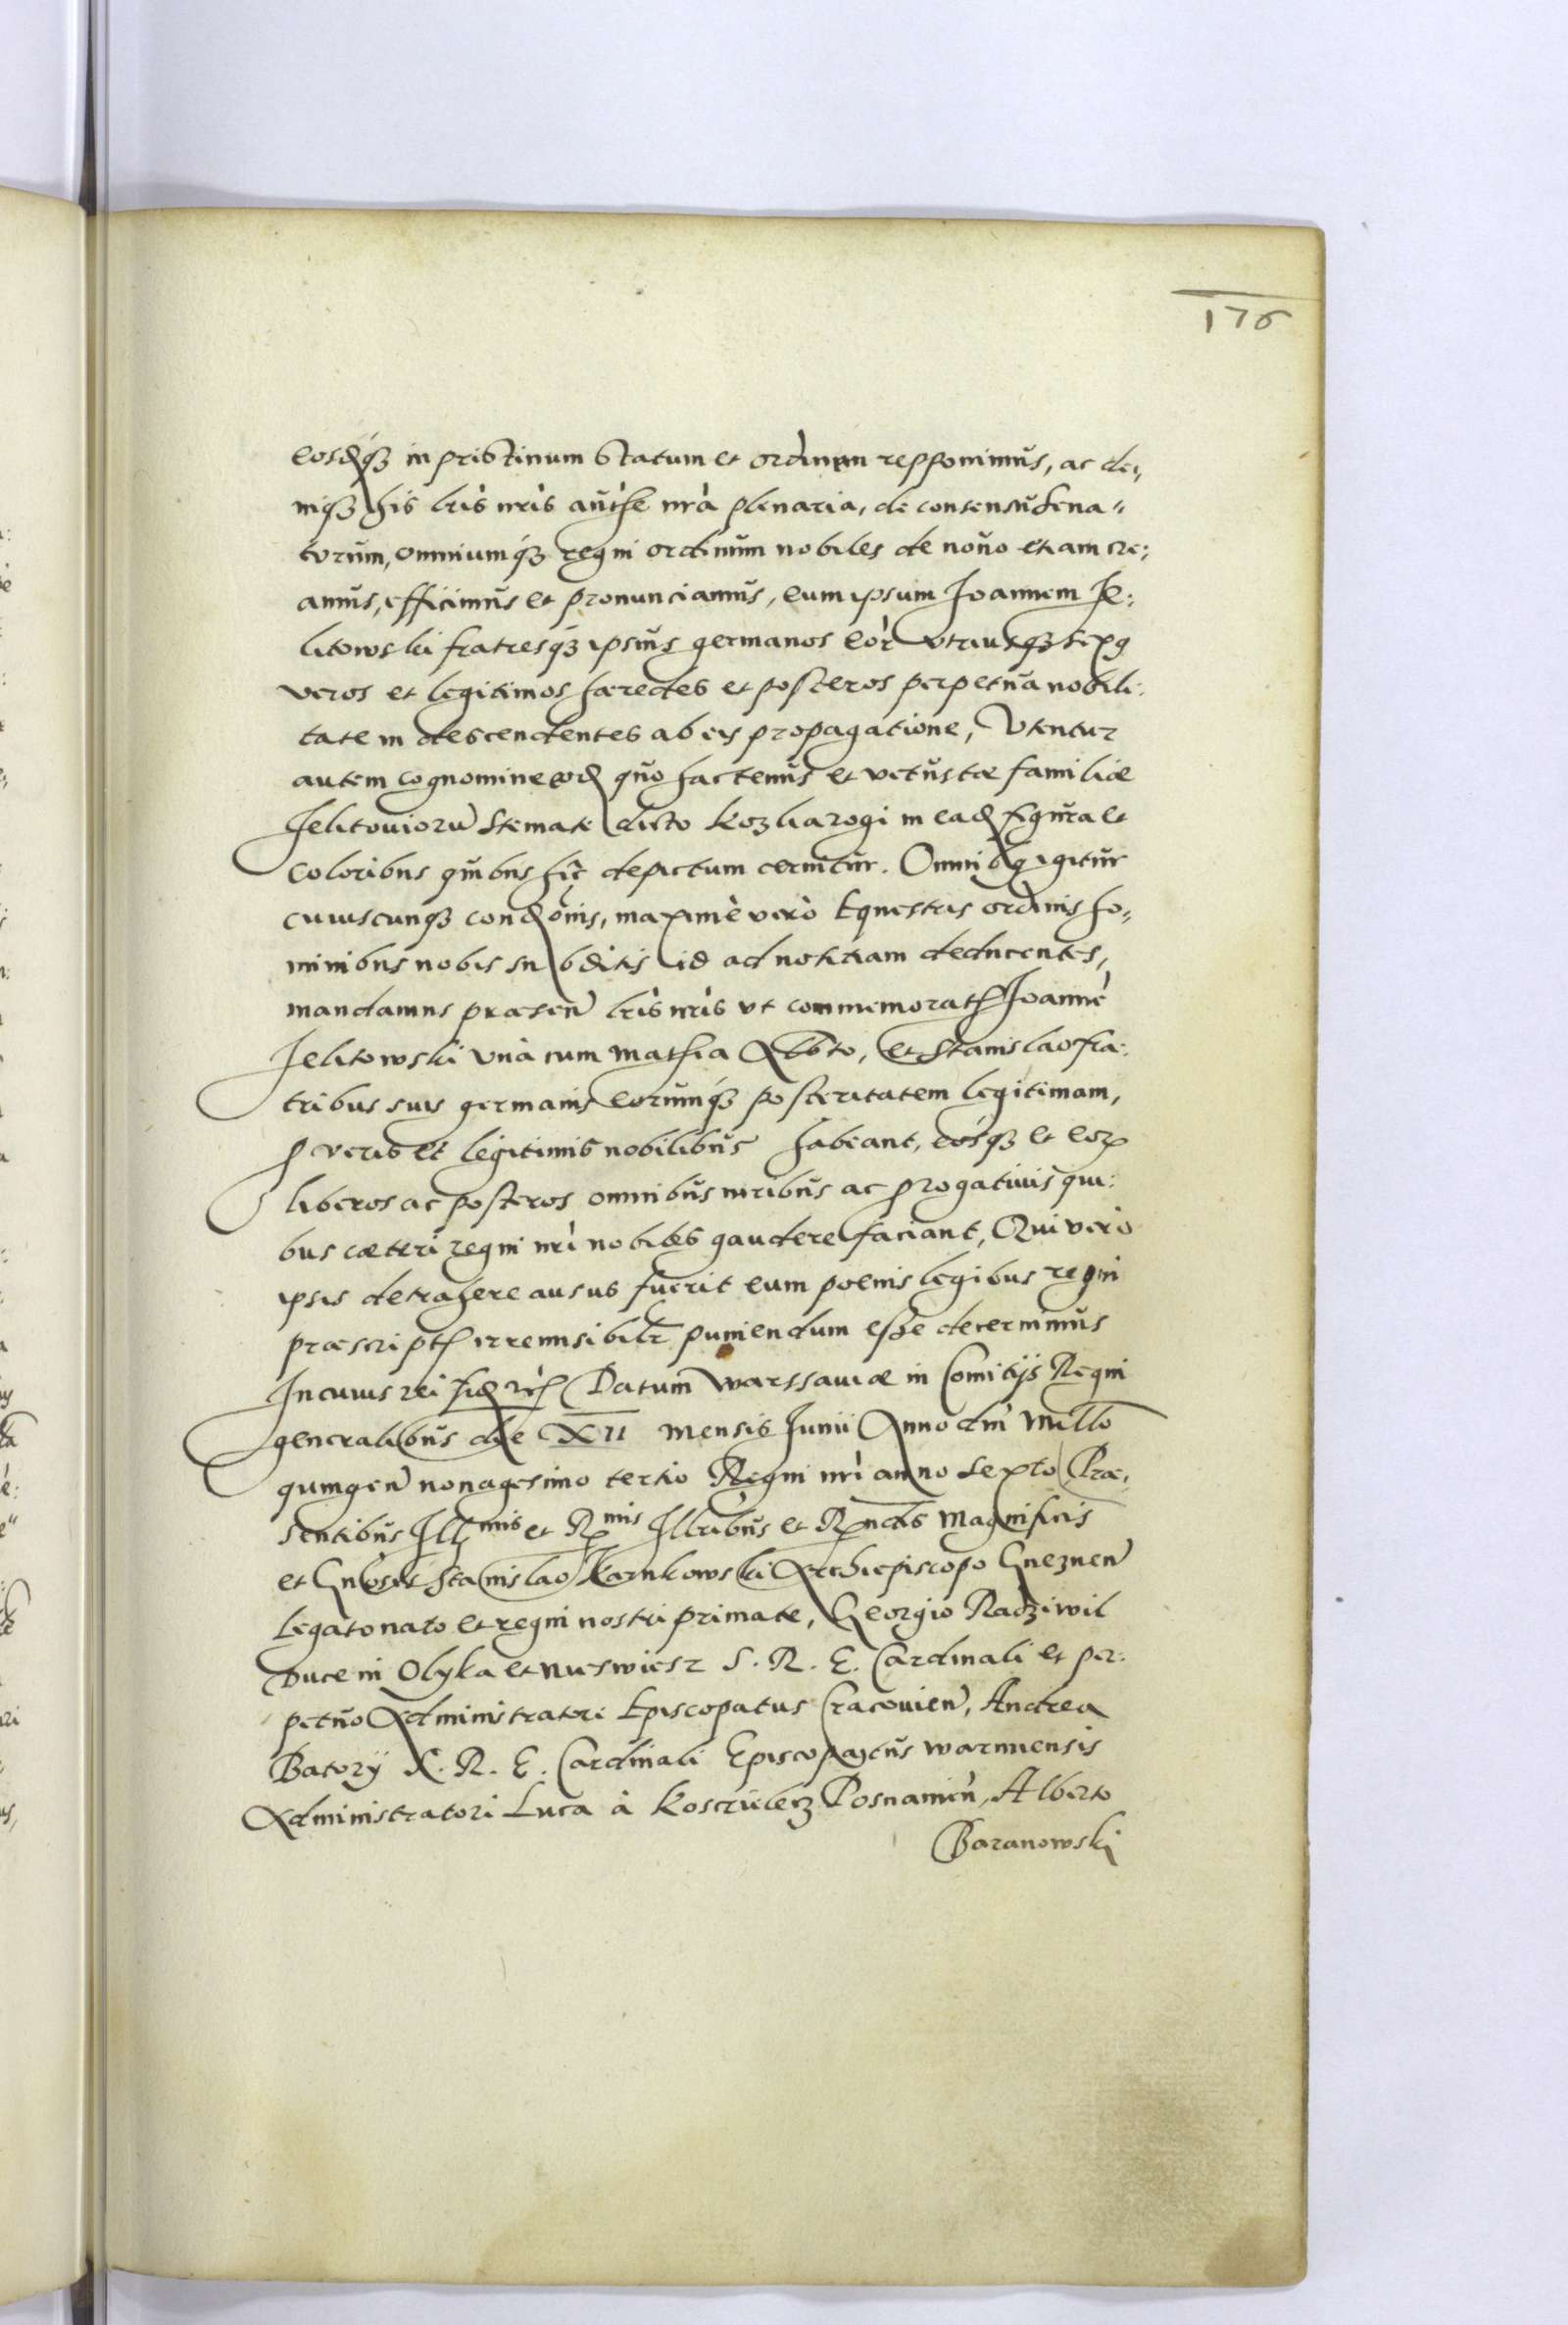 176
eosdq3 in pristinum statum et ordinem repponimus, ac de,
niq3 his lris nris authe nra plenaria, de consensu Sena"
torum, omniumq3 regni ordinum nobiles de nouo etiam cre;
amus, efficimus et pronunciamus, eum ipsum Joannem Je:
litowski fratresq3 ipsius germanos eor vtriusq3 sexq
veros et legitimos haeredes et posteros perpetua nobili:
tate in descendentes ab eis propagatione, Vtentur
autem cognomine eod quo hactenus et vetustae familiae
Jelitouioru Stemate dicto Kozliarogi in ead figura et
coloribus quibus hic depictum cernitur. Omnibq igitur
cuiuscunq3 condonis, maxime vero Equestris ordinis ho,
minibus nobis subditis id ad notitiam deducentes,
mandamus praesen lris nris vt commemorat Joanne
Jelitowski vna cum Mathia Albto, et Stanislao fra:
tribus suis germanis eorumq3 posteritatem legitimam,
p veris et legitimis nobilibus habeant, eosq3 et eor
liberos ac posteros omnibus iuribus ac progatiuis qui:
bus caeteri regni nri nobiles gaudere faciant, Qui vero
ipsis detrahere ausus fuerit eum poenis legibus regni
praescript irremisibilr puniendum esse decernimus
In cuius rei fid rei Datum Warssauiae in Comitijs Regni
generalibus die XII mensis Junii Anno dni Millo
quingen nonagesimo tertio Regni nri anno Sexto Prae,
sentibus Illmis et Rmis Illribus et Rndis Magnificis
et Gnosis Stanislao Karnkowski Archiepiscopo Gneznen
Legato nato et regni nostri primate, Georgio Radziwil
Duce in Olyka et Nieswiesz S. R. E. Cardinali et per:
petuo Administratore Episcopatus Cracouien, Andrea
Batory S. R. E. Cardinali Episcopatus Warmiensis
Administratori Luca à Koscielecz Posnanien, Alberto
Baranowski